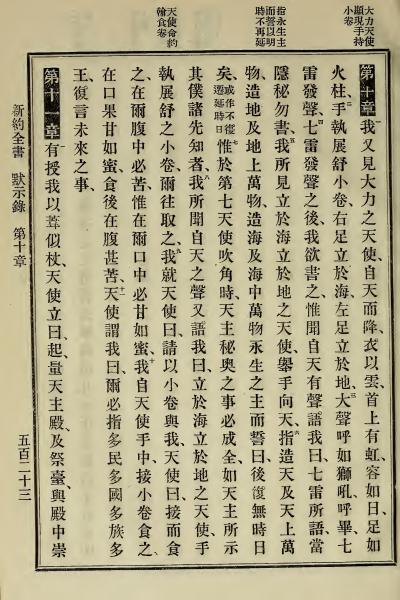 大力天使
顯現手持
小卷
指永生主
而誓以明
時不再延
天使命約
翰食卷
第十章 一我又見大力之天使、自天而降、衣以雲、首上有虹、容如日、足如
火柱、二手執展舒小卷、右足立於海、左足立於地、三大聲呼如獅吼、呼畢、七
雷發聲、四七雷發聲之後、我欲書之、惟聞自天有聲語我曰、七雷所語、當
隱秘勿書、五我所見立於海立於地之天使、舉手向天、六指造天及天上萬
物、造地及地上萬物、造海及海中萬物、永生之主而誓曰、後復無時日
矣、或作不復遷延時日七惟於第七天使吹角時、天主秘奧之事必成全、如天主所示
其僕諸先知者、八我所聞自天之聲、又語我曰、立於海立於地之天使、手
執展舒之小卷、爾往取之、九我就天使曰、請以小卷與我、天使曰、接而食
之、在爾腹中必苦、惟在爾口中必甘如蜜、十我自天使手中接小卷食之、
在口果甘如蜜、食後在腹甚苦、十一天使謂我曰、爾必指多民多國多族多
王、復言未來之事、
第十一章 一有授我以葦似杖、天使立曰、起、量天主殿、及祭臺、與殿中崇
新約全書 默示錄 第十章
五百二十三